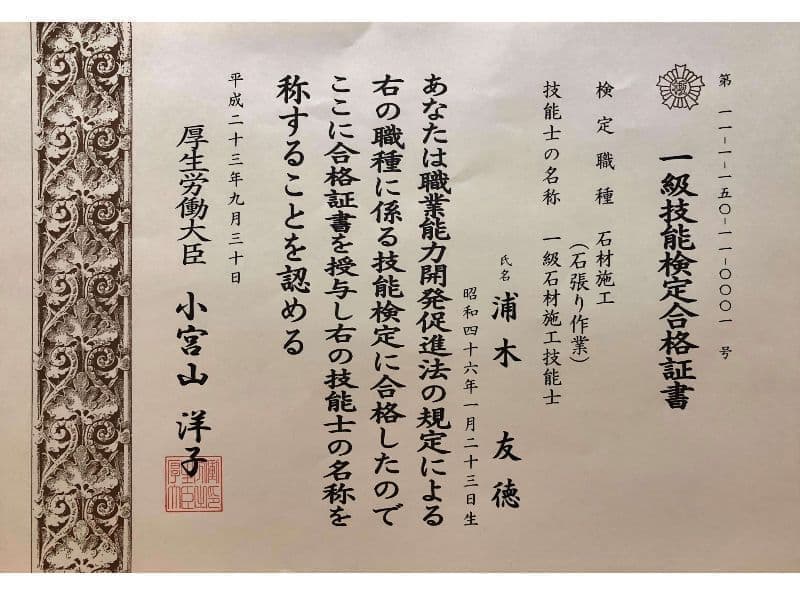 第 一一-一-一五〇-一一-〇〇〇一 号
一級技能検定合格証書
検定職種 石材施工
(石張り作業)
技能士の名称 一級石材施工技能士
氏名 浦木 友徳
昭和四十六年一月二十三日生
あなたは職業能力開発促進法の規定による
右の職種に係る技能検定に合格したので
ここに合格証書を授与し右の技能士の名称を
称することを認める
平成二十三年九月三十日
厚生労働大臣 小宮山 洋子